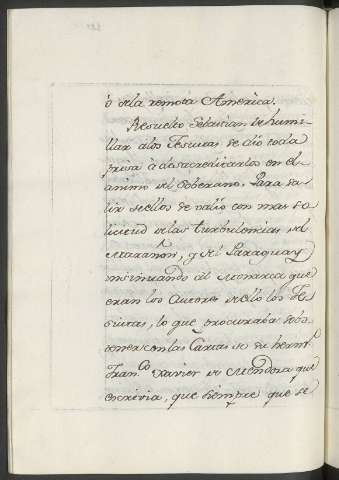 ô de la remota America.
Resuelto Sebastian de humi-
llar a los Jesuitas se dio toda
prisa à desacreditarlos en el
animo del Soberano. Para sa-
lir de ellos se valio con mas so-
licitud de las turbulencias del
Marañon, y del Paraguay
insinuando al Monarca que
eran los Autores de ello los Je-
suitas, lo que procuraba sos-
tener con las Cartas de su herm.º
Fran.co Xavier de Mendosa que
escrivia, que siempre que se